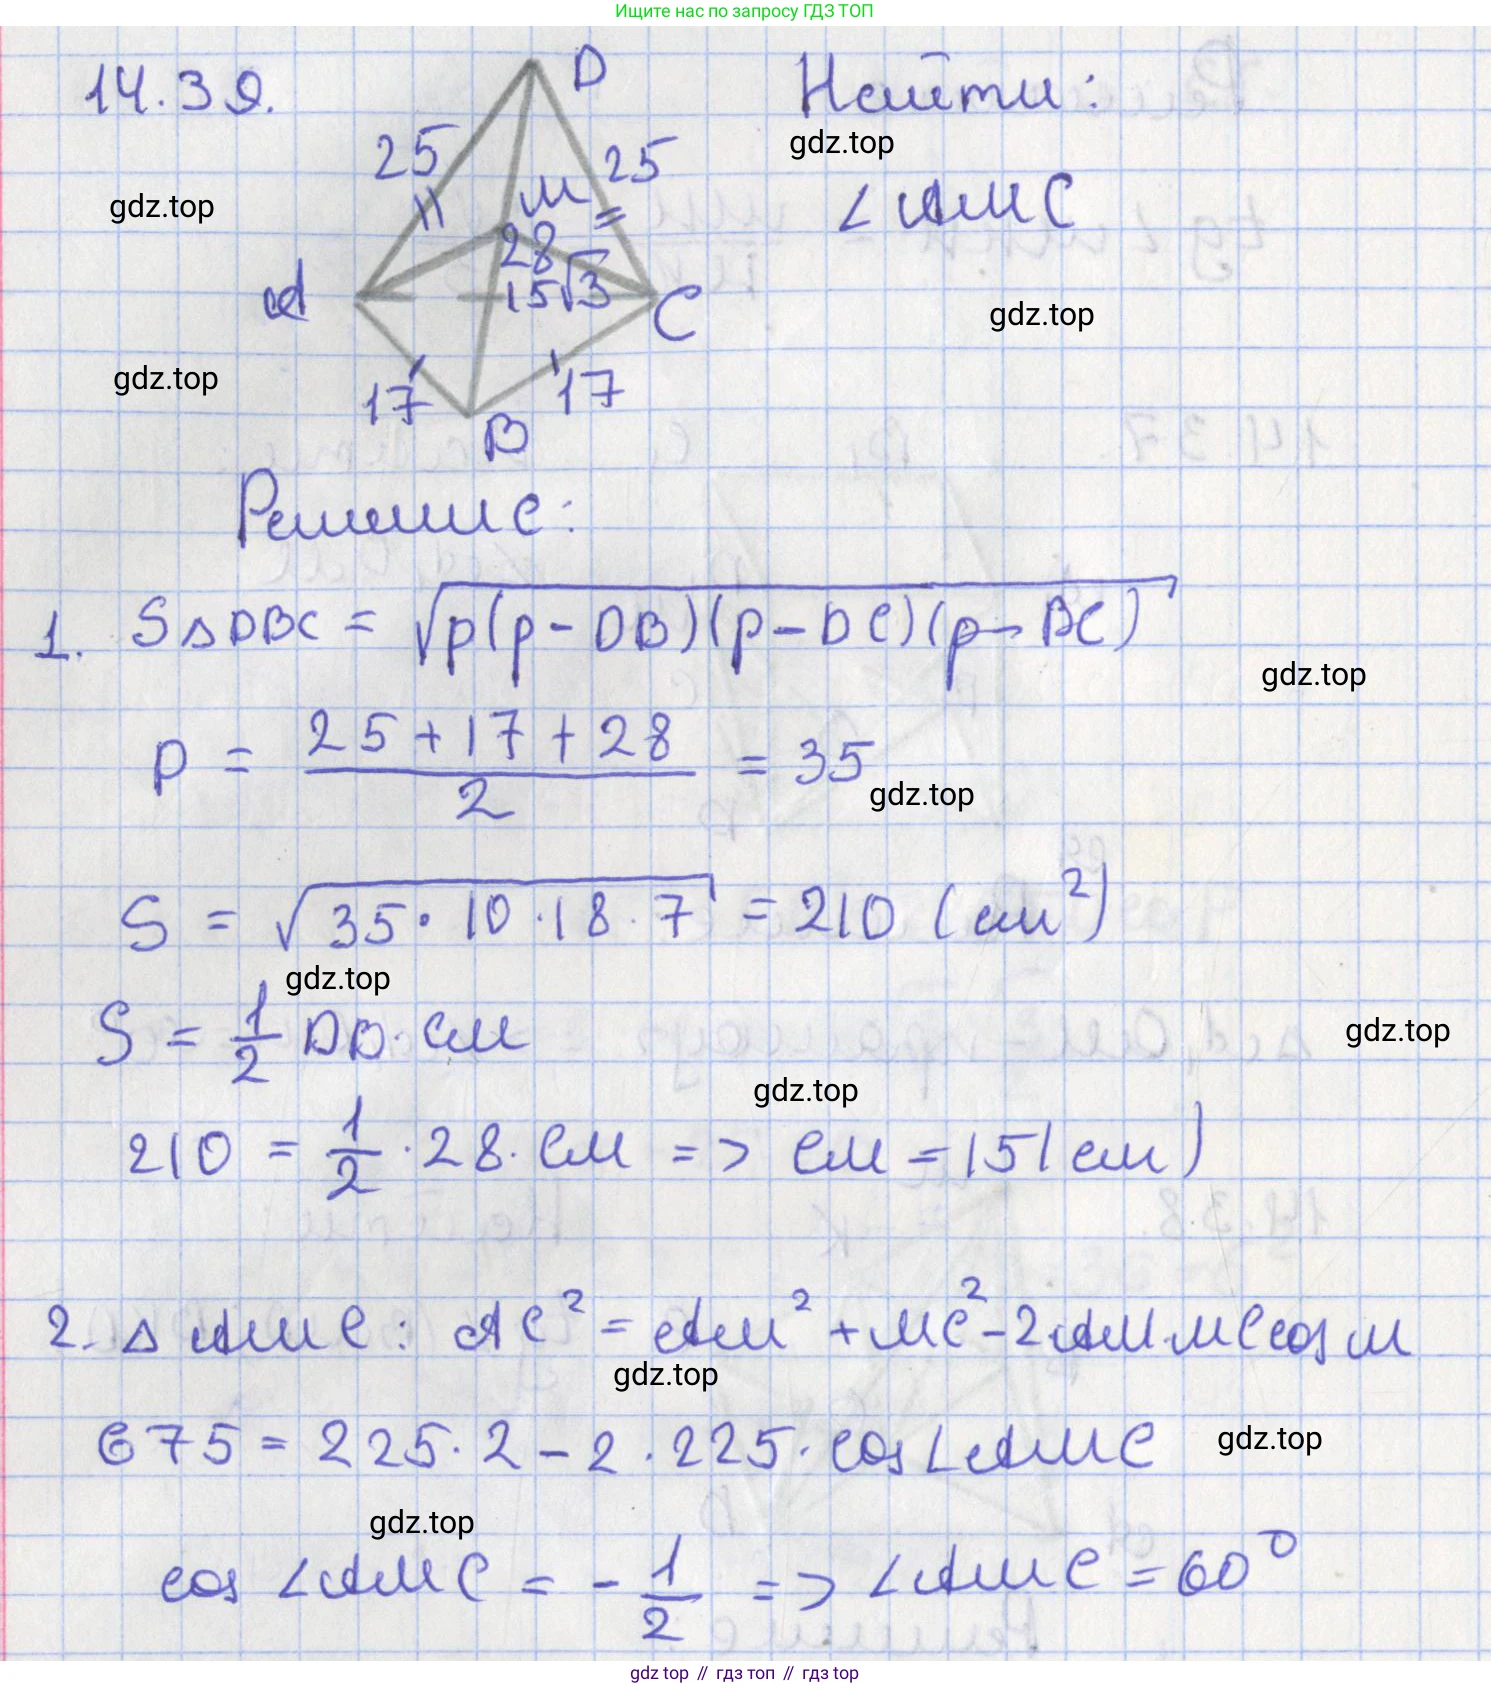 Ищите нас по запросу ГДЗ ТОП
14.39.
D
Найти:
25
25
gdz.top
M
gdz.top
∠AMC
28
15√3
A
C
gdz.top
gdz.top
17
17
B
Решение:
1. S△DBC = √p(p-DB)(p-DC)(p-BC)
gdz.top
p = (25+17+28)/2 = 35
gdz.top
S = √35·10·18·7 = 210 (см²)
gdz.top
S = 1/2 DB·CM
gdz.top
gdz.top
210 = 1/2 ·28·CM => CM = 15(см)
2. △AMC: AC² = AM² + MC² - 2AM·MC cos M
gdz.top
675 = 225·2 - 2·225·cos∠AMC
gdz.top
gdz.top
cos ∠AMC = - 1/2 => ∠AMC = 60°
gdz top // гдз топ // gdz top